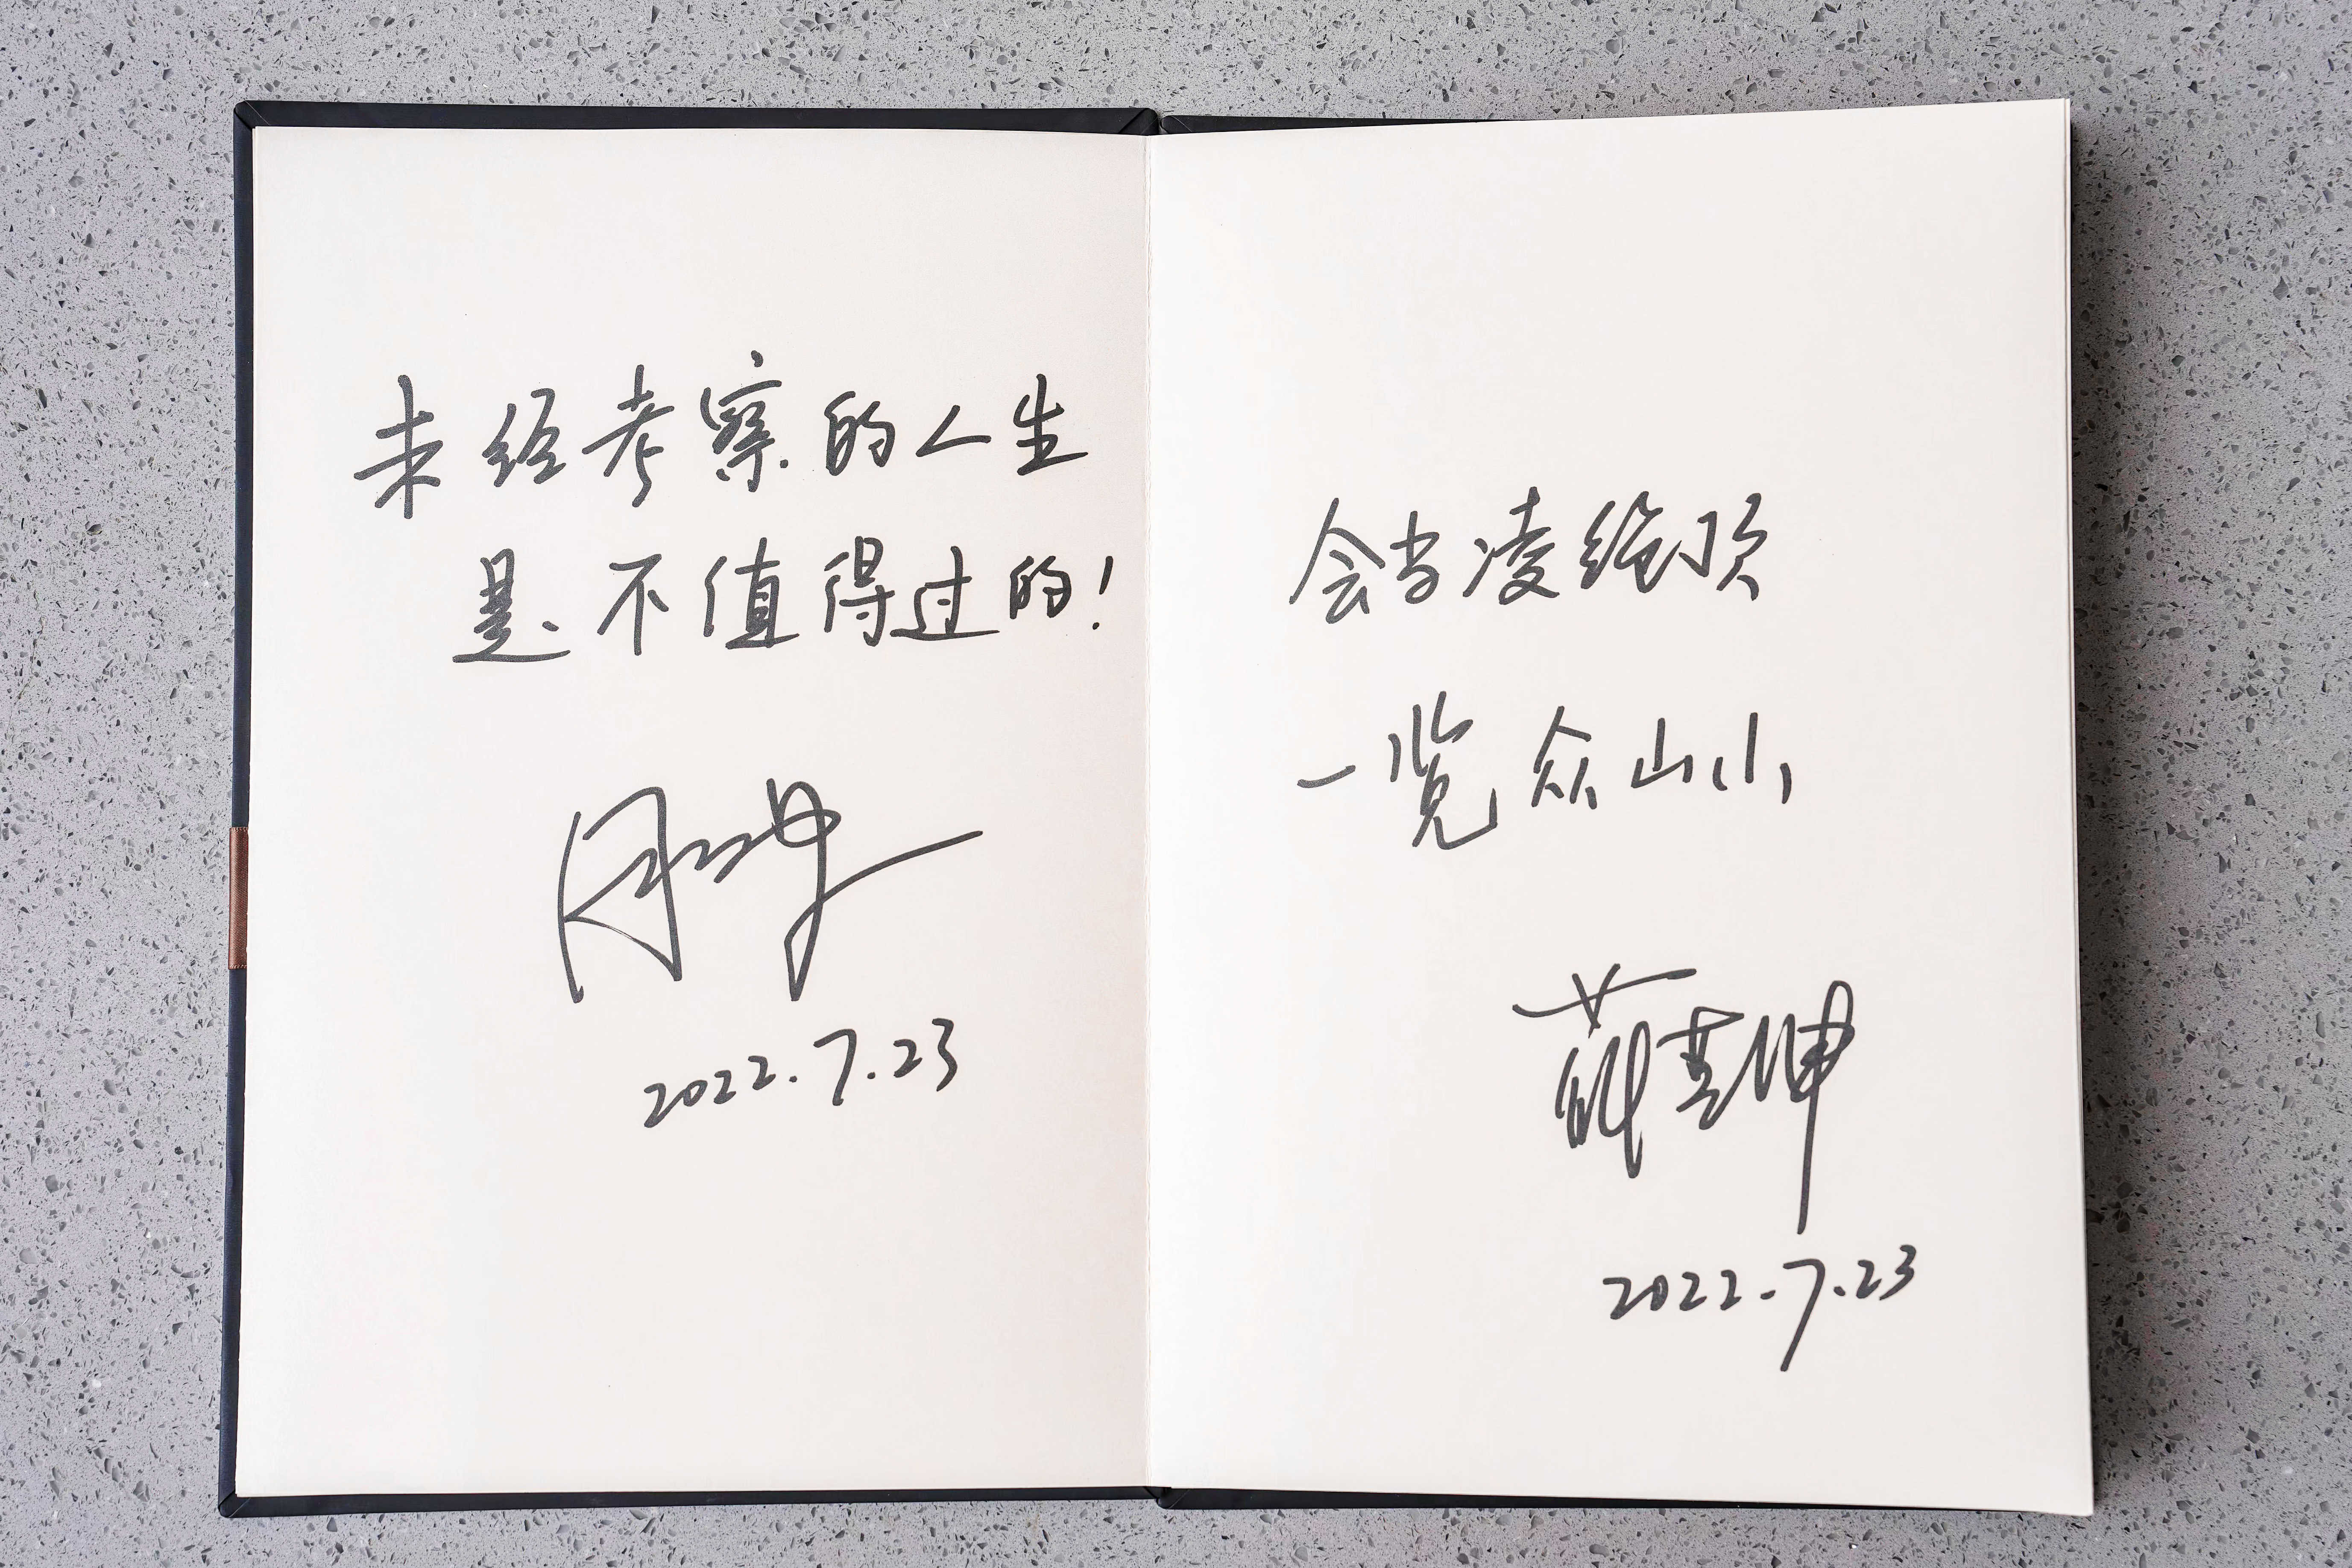 未经考察的人生
是不值得过的!
2022.7.23
会当凌绝顶
一览众山小
2022.7.23